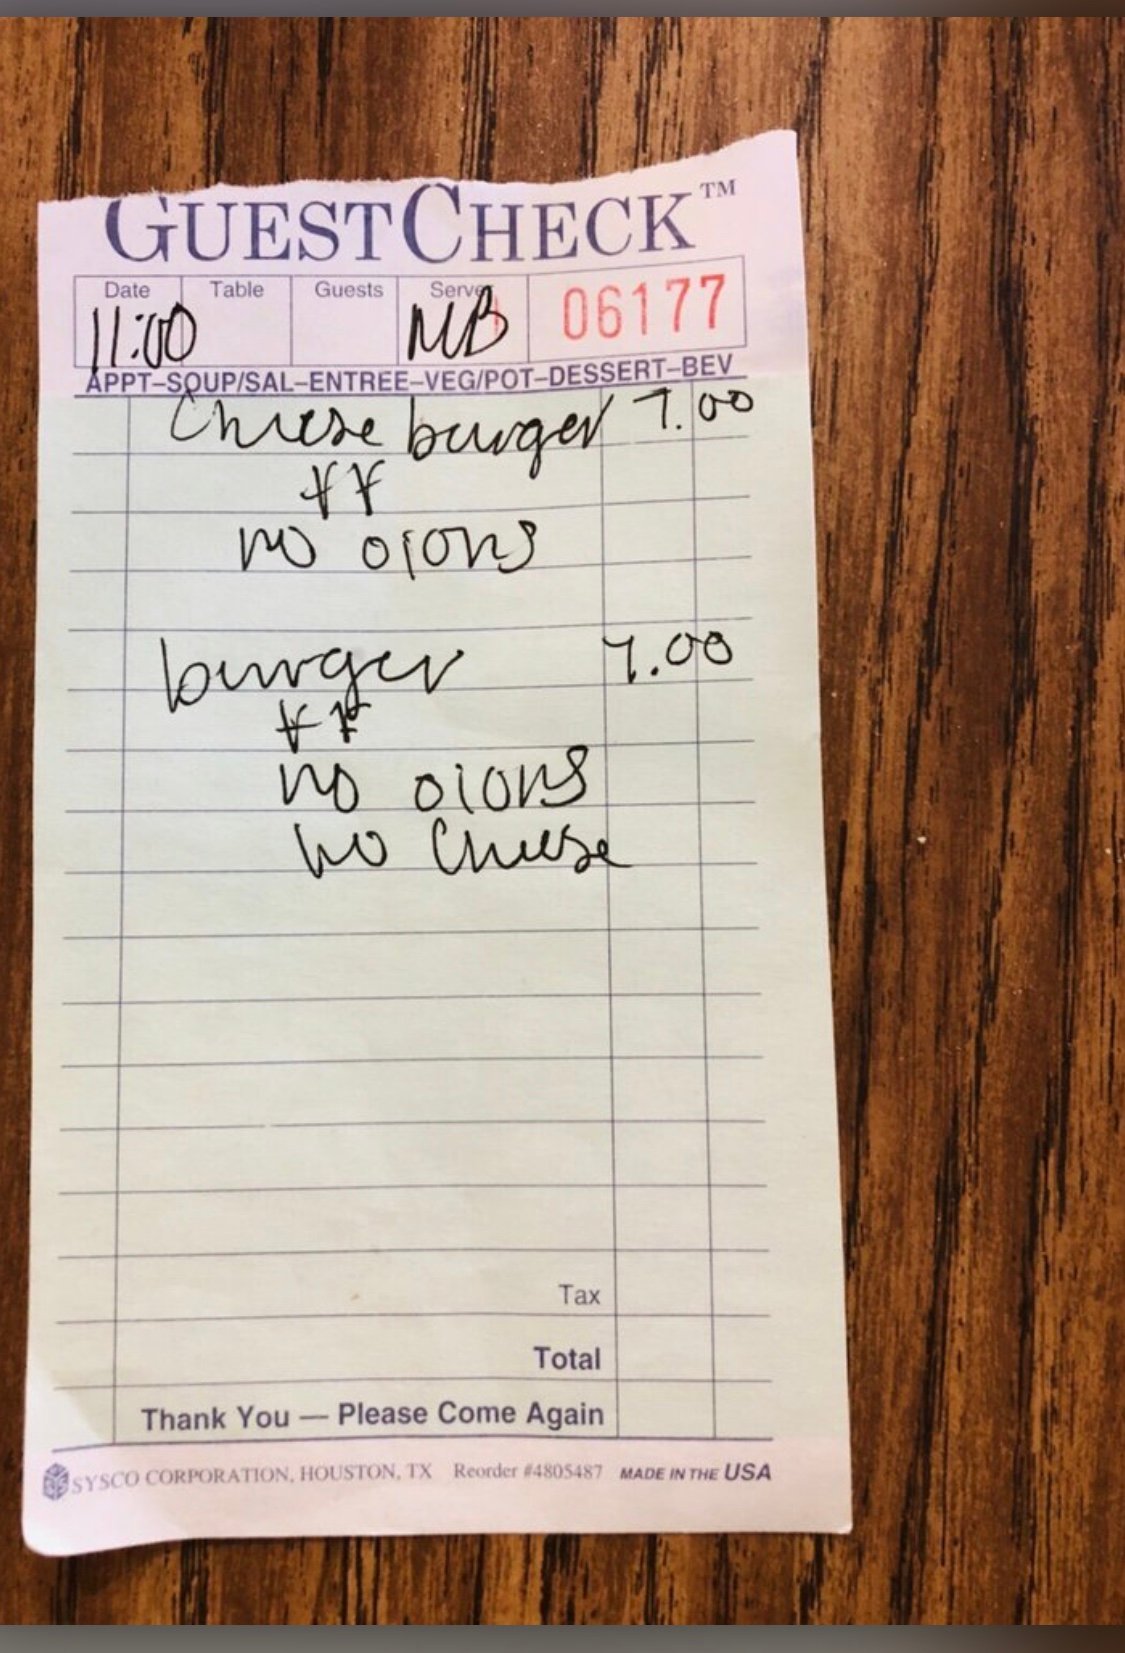 GUESTCHECK™
Date Table Guests Server
11:00 MB 06177
APPT–SOUP/SAL–ENTREE–VEG/POT–DESSERT–BEV
Cheese burger 7.00
FF
no oions
burger 7.00
FF
no oions
no Cheese
Tax
Total
Thank You — Please Come Again
SYSCO CORPORATION, HOUSTON, TX Reorder #4805487 MADE IN THE USA